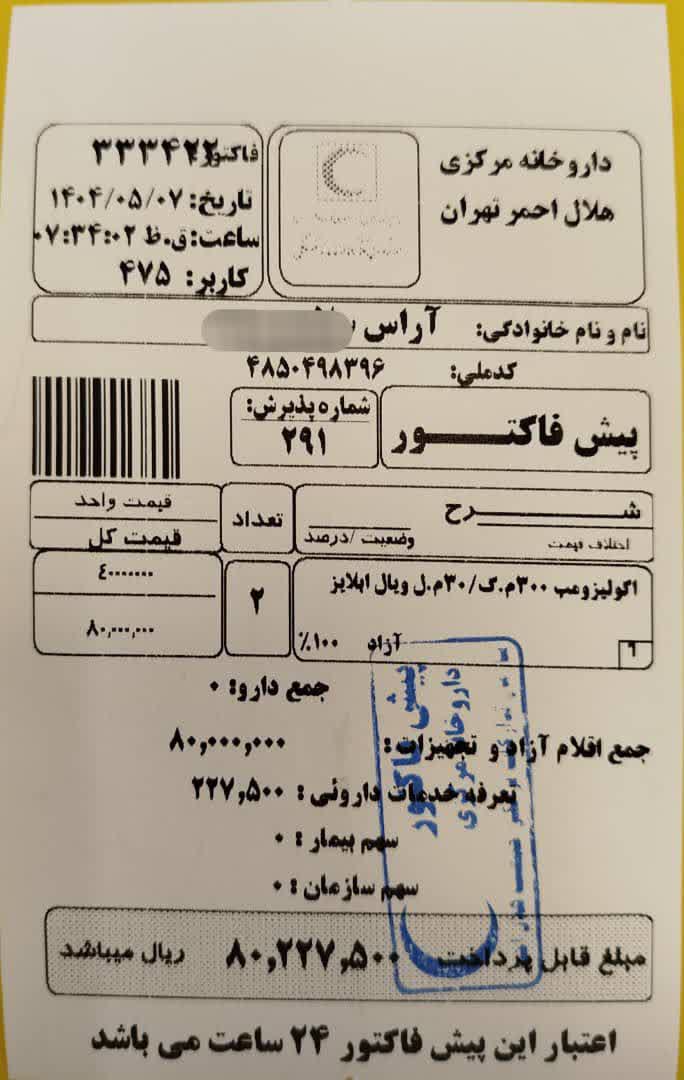 داروخانه مرکزی
هلال احمر تهران
فاکتور: ۳۳۳۴۲۲
تاریخ: ۱۴۰۴/۰۵/۰۷
ساعت: ق.ظ ۰۷:۳۴:۰۲
کاربر: ۴۷۵
نام و نام خانوادگی: آراس
کدملی: ۴۸۵۰۴۹۸۳۹۶
پیش فاکتور
شماره پذیرش:
۲۹۱
شرح
اختلاف قیمت
وضعیت /درصد
تعداد
قیمت واحد
قیمت کل
اکولیزومب ۳۰۰م.گ/۳۰م.ل ویال اپلایز
آزاد ۱۰۰٪
۲
۴۰۰۰۰۰۰۰
۸۰,۰۰۰,۰۰۰
جمع دارو: ۰
جمع اقلام آزاد و تجهیزات: ۸۰,۰۰۰,۰۰۰
تعرفه خدمات داروئی: ۲۲۷,۵۰۰
سهم بیمار: ۰
سهم سازمان: ۰
مبلغ قابل پرداخت ۸۰,۲۲۷,۵۰۰ ریال میباشد
اعتبار این پیش فاکتور ۲۴ ساعت می باشد
پیش فاکتور
داروخانه مرکزی